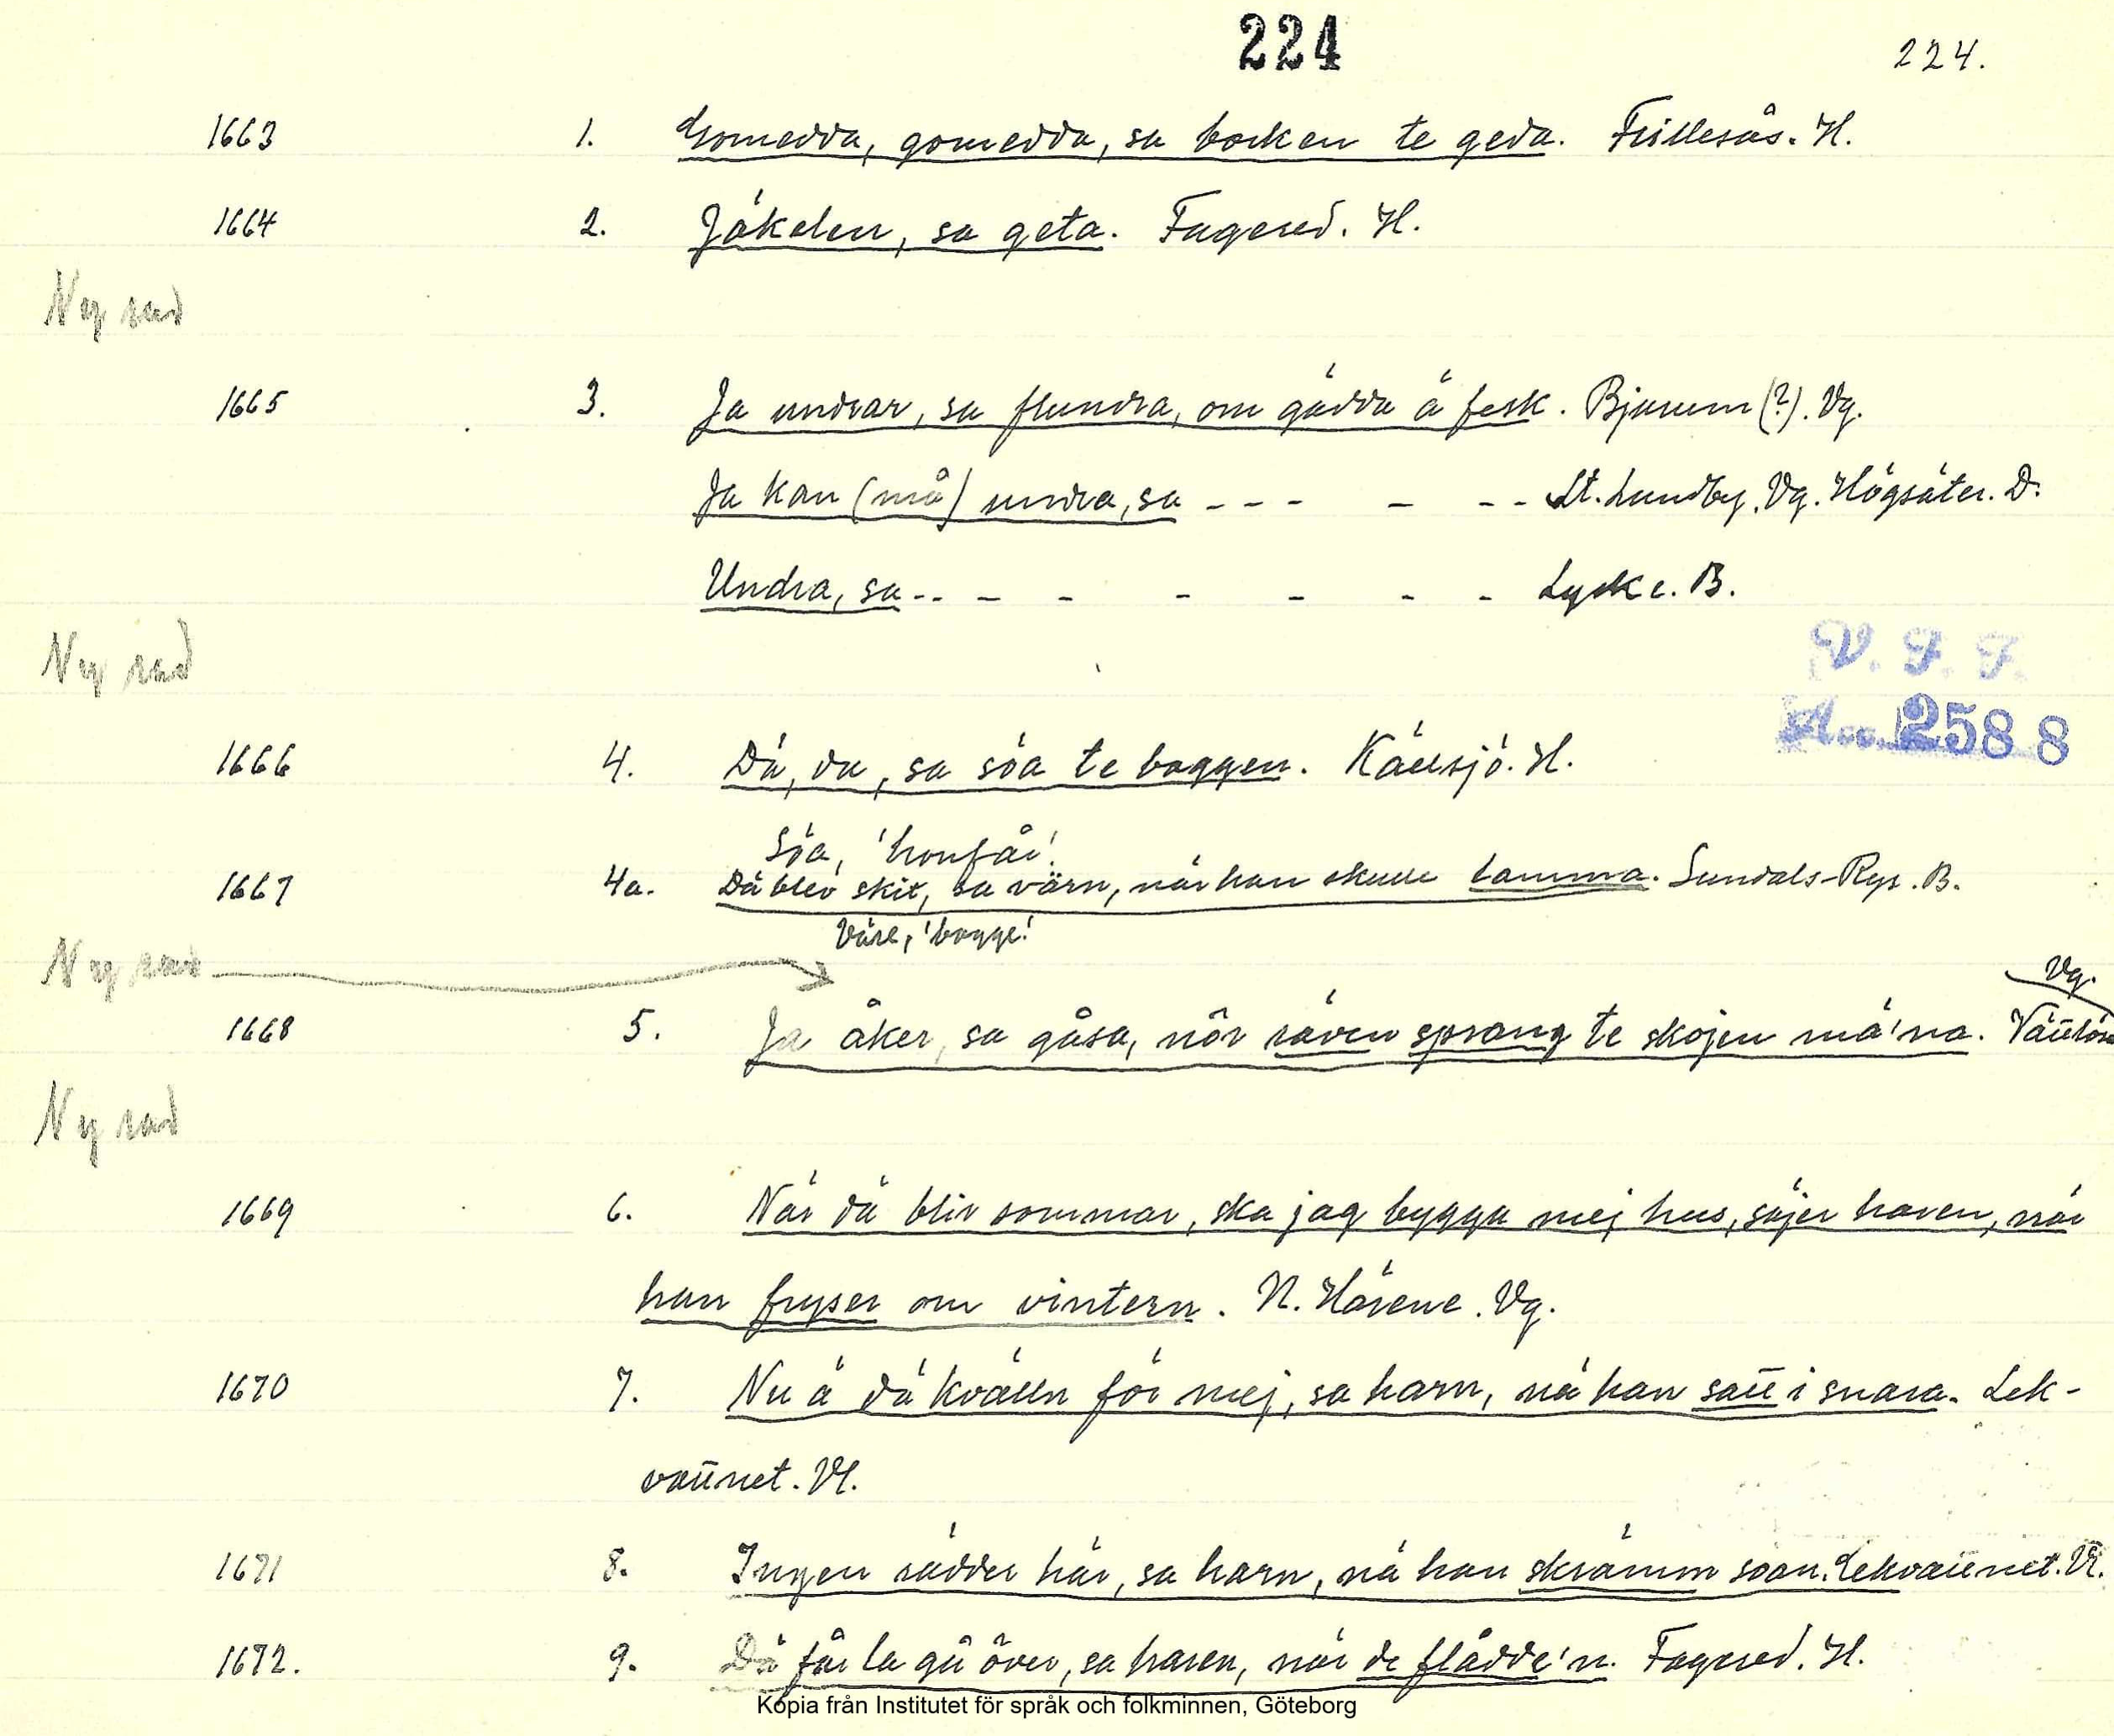 224
224.
1663 1. Gomedda, gomedda, sa bocken te geda. Frillesås. H.
1664 2. Jäkelen, sa geta. Fagered. H.
Ny rad
1665 3. Ja undrar, sa flundra, om gädda ä fesk. Bjurum (?). Vg.
Ja kan (må) undra, sa - - - - - - St. Lundby. Vg. Högsäter. D.
Undra, sa - - - - - - - - Lycke. B.
Ny rad
V. F. F.
Acc. 2588
1666 4. Dä, dä, sa söa te baggen. Källsjö. H.
Söa, 'honfår'.
1667 4a. Dä blev skit, sa värn, när han skulle lamma. Sundals-Ryr. B.
Väre, 'bagge'.
Ny rad
Vg.
1668 5. Ja åker, sa gåsa, nôr räven sprang te skojen mä'na. Vättlösa
Ny rad
1669 6. När dä blir sommar, ska jag bygga mej hus, säjer haren, när
han fryser om vintern. N. Härene. Vg.
1670 7. Nu ä dä kvälln för mej, sa harn, nä han satt i snara. Lek-
vattnet. Vl.
1671 8. Ingen rädder här, sa harn, nä han skrämm soan. Lekvattnet. Vl.
1672. 9. Dä får la gå över, sa haren, när de flådde'n. Fagered. H.
Kopia från Institutet för språk och folkminnen, Göteborg